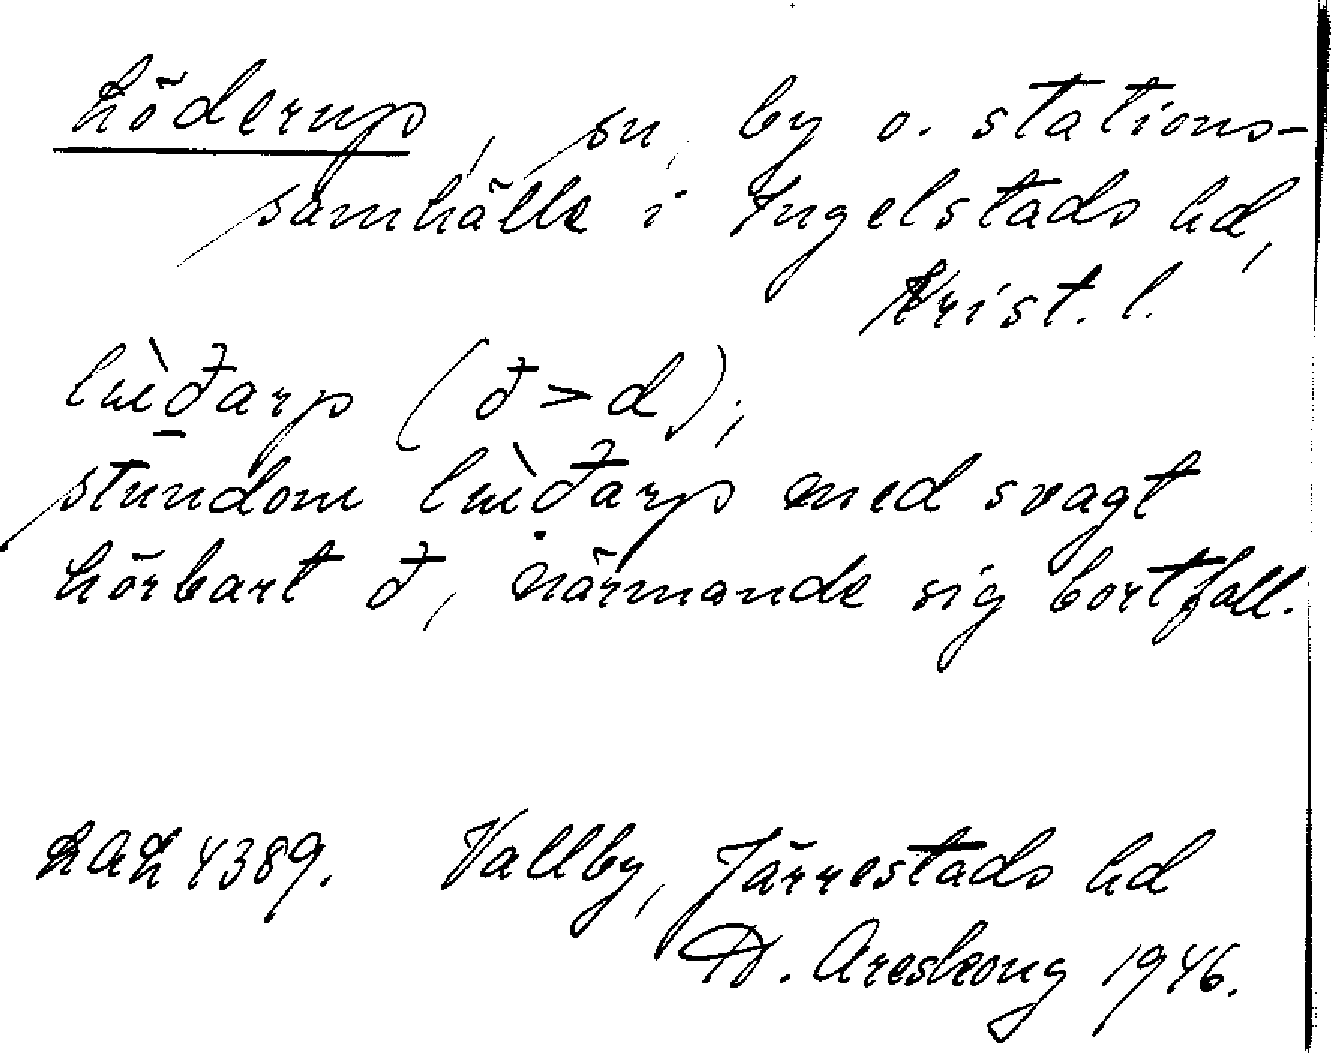 Löderup, sn, by o. stations-
samhälle i Ingelstads hd,
Krist. l.
(đ > d);
stundom med svagt
hörbart đ, närmande sig bortfall.
LAL 4389. Vallby, Järrestads hd
Areskoug 1946.